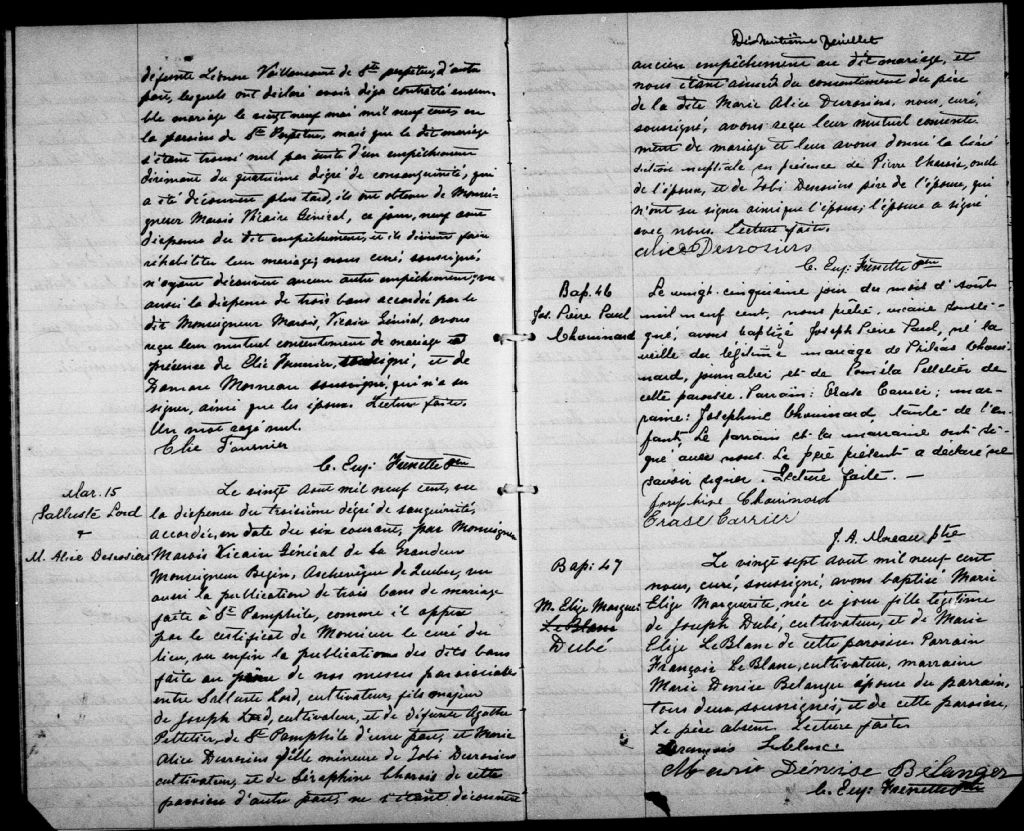 défunte Léonore Vaillancourt de St perpétue, d'autre
part, lesquels ont déclaré avoir déja contracté ensem-
ble mariage le vingt neuf mai mil neuf cents, en
la paroisse de Ste Perpétue, mais que le dit mariage
s'étant trouvé nul par suite d'un empêchement
dirimant du quatrième dégré de consanguinité, qui
a été découvert plus tard, ils ont obtenu de Monsei-
gneur Marois Vicaire Général, ce jour, neuf août
dispense du dit empêchement, et ils désirent faire
réhabiliter leur mariage; nous curé, soussigné,
n'ayant découvert aucun autre empêchement; vu
aussi la dispense de trois bans accordée par le
dit Monseigneur Marois, Vicaire Général, avons
reçu leur mutuel consentement de mariage en
présence de Elie Fournier, soussigné, et de
Damase Morneau soussigné, qui n'a su
signer, ainsi que les époux. Lecture faite.
Un mot rayé nul.
Elie Fournier
C. Eug: Frenette ptre
Mar. 15
Salluste Lord
+
M. Alice Desrosiers
Le vingt Août mil neuf cent, vu
la dispense du troisième dégré de sanguinité,
accordée, en date du six courant, par Monseigneur
Marois Vicaire Général de Sa Grandeur
Monseigneur Begin, Archevêque de Quebec, vu
aussi la publication de trois bans de mariage
faite à St Pamphile, comme il appert
par le certificat de Monsieur le curé du
lieu, vu enfin la publications des dits bans
faite au prône de nos messes paroissiales
entre Salluste Lord, cultivateur, fils majeur
de Joseph Lord, cultivateur, et de défunte Agathe
Pelletier, de St Pamphile d'une part; et Marie
Alice Desrosiers fille mineure de Tobi Desrosiers
cultivateur, et de Séraphine Chassé de cette
paroisse d'autre part; ne s'étant découvert
Dix huitième feuillet
aucun empêchement au dit mariage, et
nous étant assuré du consentement du père
de la dite Marie Alice Desrosiers, nous, curé,
soussigné, avons reçu leur mutuel consente
ment de mariage et leur avons donné la béné
diction nuptiale en présence de Pierre Chassé, oncle
de l'époux, et de Tobi Desrosiers père de l'épouse, qui
n'ont su signer ainsi que l'époux; l'épouse a signé
avec nous. Lecture faite.
Alice Desrosiers
C. Eug: Frenette ptre
Bap. 46
Jos. Pierre Paul
Chouinard
Le vingt-cinquième jour du mois d'Août
mil neuf cent, nous prêtre, vicaire soussi-
gné, avons baptizé Joseph Pierre Paul, né la
veille du légitime mariage de Philéas Choui-
nard, journalier et de Paméla Pelletier de
cette paroisse. Parrain: Erase Carrier; mar-
raine: Josephine Chouinard tante de l'en-
fant. Le parrain et la marraine ont si-
gné avec nous. Le père présent a declaré ne
savoir signer. Lecture faite. —
Josephine Chouinard
Erase Carrier
J. A. Moreau ptre
Bap: 47
M. Elize Margueri
LeBlanc
Dubé
Le vingt sept Août mil neuf cent
nous, curé, soussigné, avons baptisé Marie
Elize Marguerite, née ce jour fille légitime
de Joseph Dubé, cultivateur, et de Marie
Elize LeBlanc de cette paroisse Parrain
François LeBlanc, cultivateur, marraine
Marie Denise Belanger épouse du parrain,
tous deux soussignés, et de cette paroisse.
Le père absent. Lecture faite
François Leblanc.
Marie Denise Bélanger
C. Eug: Frenette ptre